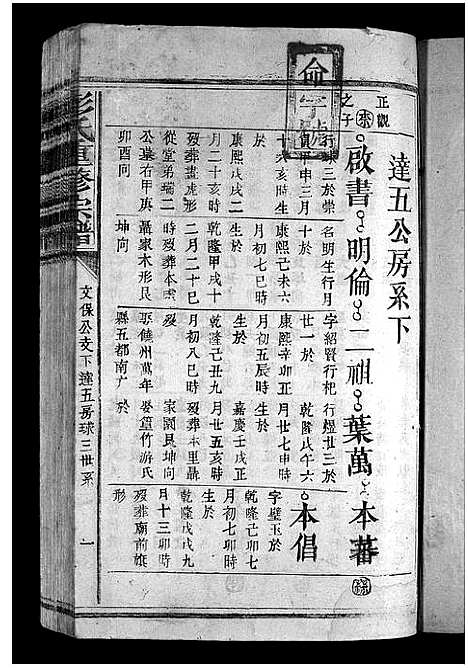 達五公房系下
正觀
之子
啟書
明倫
二祖
葉萬
本蕃
行球三於崇
貞甲申三月
十六亥生
於
康熙戊戌二
月二十亥時
歿葬虎形
從堂弟瑞二
公墓右甲庚
卯酉向
名明生行月
十於
康熙己未六
月初七巳時
生於
乾隆甲戌十
二月二十巳
時歿葬本
聶家木形艮
坤向
字紹賢行杞
廿一於
康熙辛卯正
月初五辰時
生於
乾隆己丑九
月初八巳時
歿
娶饒州萬年
縣五都南广
行煜廿三於
乾隆戊午六
月廿七申時
生於
嘉慶壬戌正
月廿五亥時
歿葬本里聶
家園艮坤向
娶簹竹游氏
於
本倡
字璧玉於
乾隆己卯七
月初七卯時
生於
乾隆戊戌九
月十三卯時
歿葬廟前旗
形
彭氏重修宗譜
文保公支下達五房球三世系
一